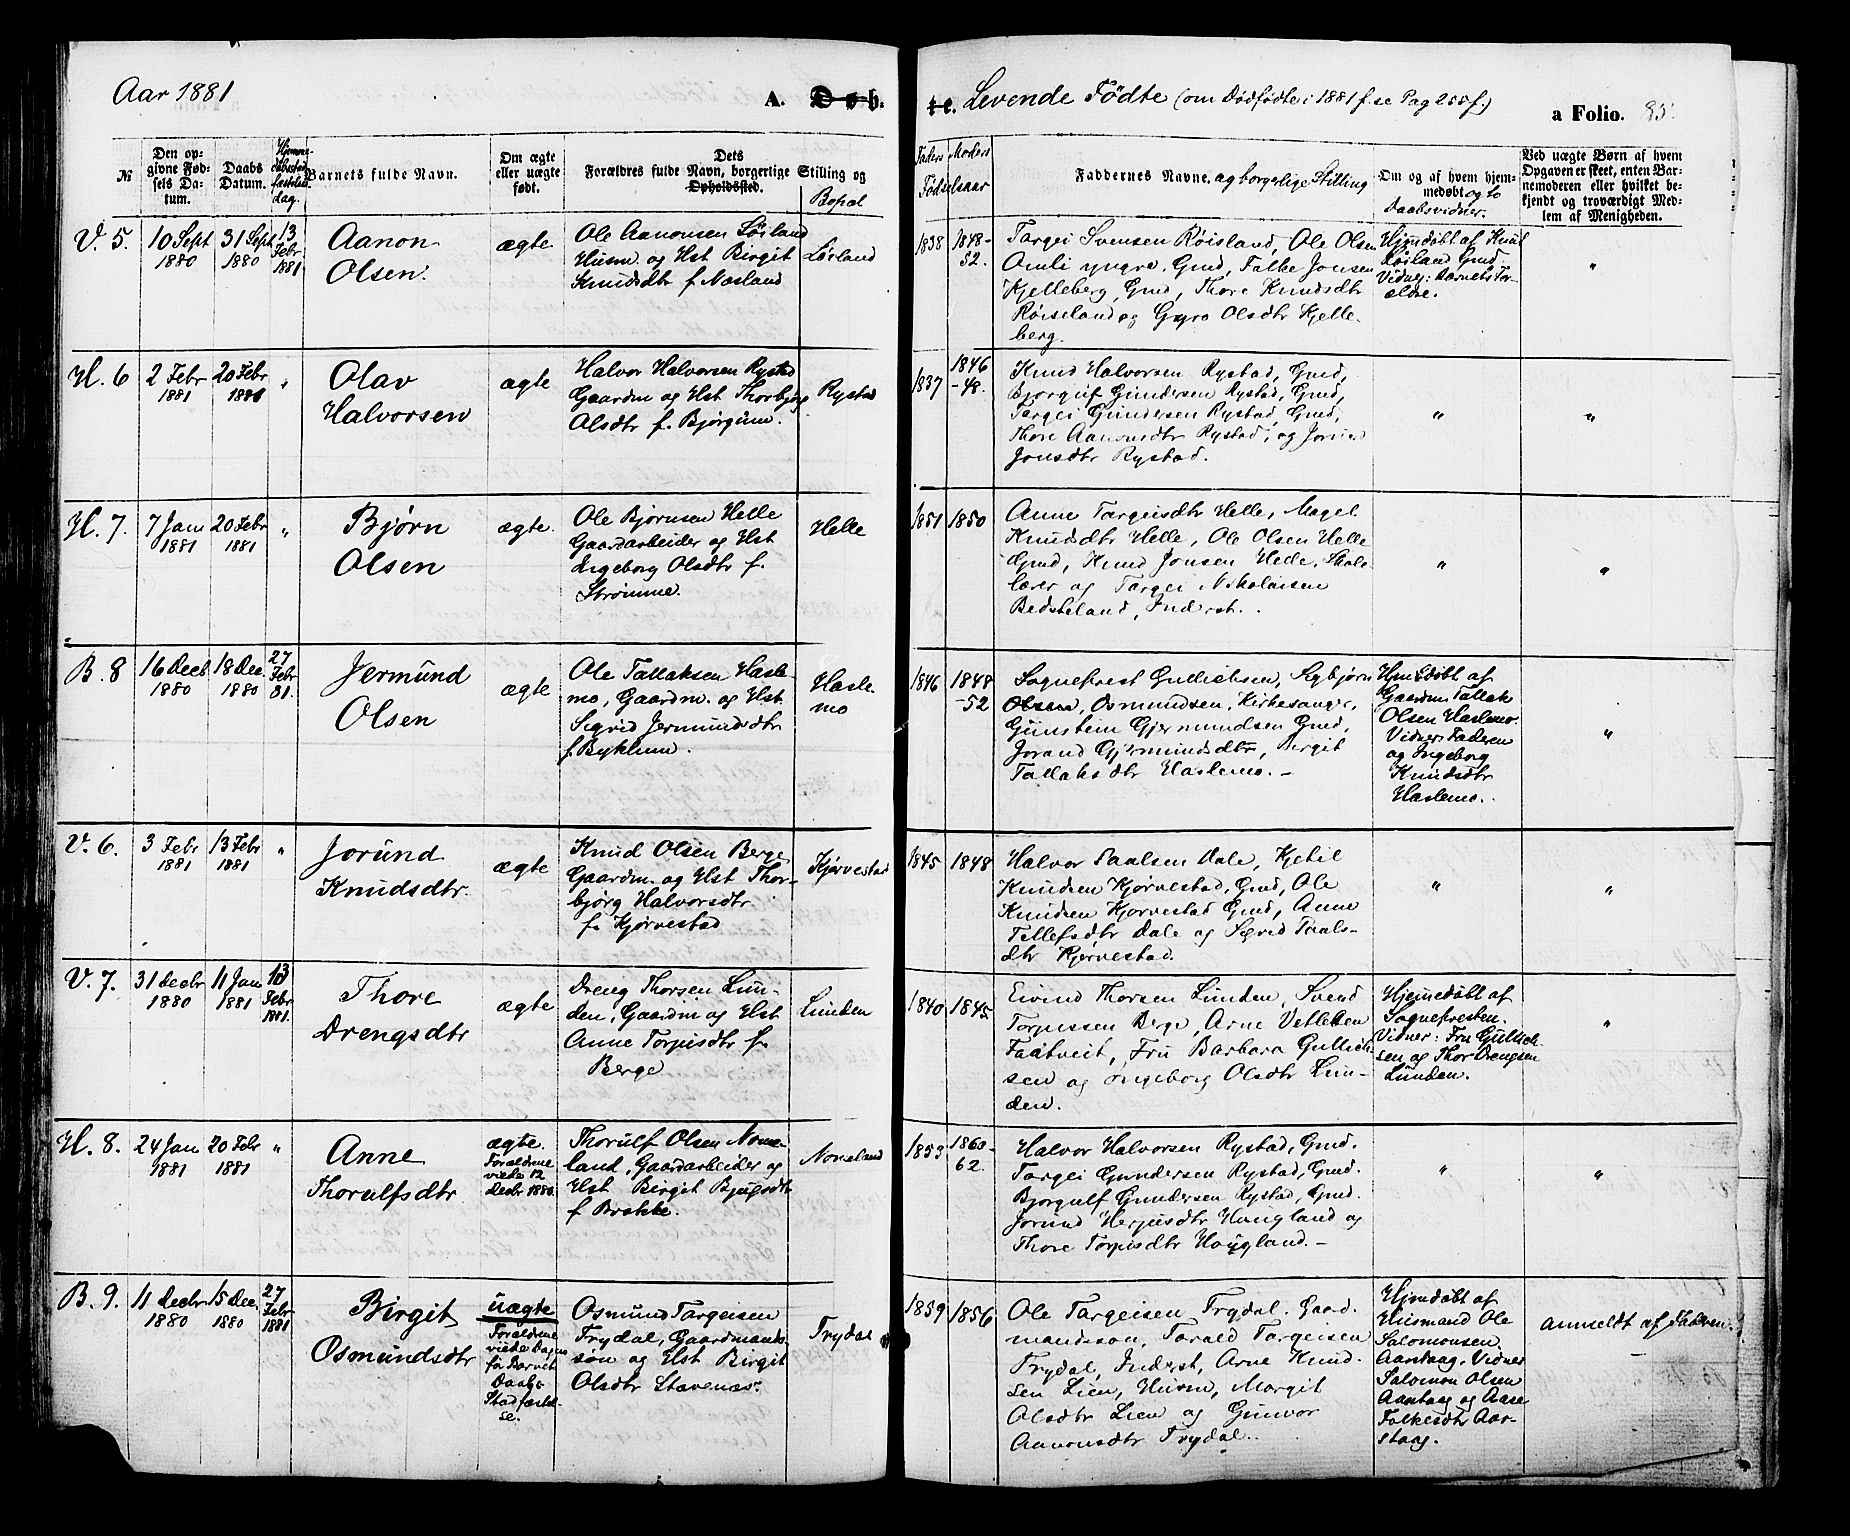 Aar 1881
A. Daab.
I e. Levende Fødte (om Dødfødte i 1881 f. se Pag 255 f.)
a Folio. 85.
№
Den opgivne Fødsels Datum.
Daabs Datum.
Barnets fulde Navn.
Om ægte eller uægte født.
Forældres fulde Navn, borgerlige Stilling og
Dets
Opholdssted.
Bopæl
Faders
Moders
Fødselsaar
Faddernes Navne, og borgerlige Stilling
Om og af hvem hjemmedøbt og to Daabsvidner.
Ved uægte Børn af hvem
Opgaven er skeet, enten Barnemoderen eller hvilket bekjendt og troværdigt Medlem af Menigheden.
V. 5.
10 Sept 1880
31 Sept 1880
13 Febr 1881
Aanon
Olsen.
ægte
Ole Aanonsen Løiland
Husm og Hst Birgit
Knudsdtr f. Næsland
Løvland
1838
1848-52.
Targei Svensen Røisland, Ole Olsen
Omli yngre, Gmd, Falke Jonsen
Kjelleberg, Gmd, Thore Knudsdtr
Røiseland og Gyro Olsdtr Kjelle-
berg.
Hjemdøbt af Knut
Røisland Gmd
Vidner: Barnets For-
ældre.
"
H. 6
2 Febr 1881
20 Febr 1881
"
Olav
Halvorsen
ægte
Halvor Halvorsen Rystad
Gaardm og Hst Thorbjørg
Olsdtr f. Bjørgum.
Rystad
1837
1846-48.
Knud Halvorsen Rystad, Gmd,
Bjørgulf Gundersen Rystad, Gmd,
Targei Gundersen Rystad, Gmd,
Thore Aanonsdtr Rystad, og Jorund
Jonsdtr Rystad.
"
"
H. 7.
7 Jan 1881
20 Febr 1881
"
Bjørn
Olsen
ægte.
Ole Bjørnsen Helle
Gaardarbeider og Hst
Ingeborg Olsdtr f.
Strømme.
Helle
1851
1850
Anne Targeisdtr Helle, Margit
Knudsdtr Helle, Ole Olsen Helle
Gmd, Knud Jonsen Helle, Skole-
lærer og Targei Nikolaisen
Bedsteland, Inderst.
"
"
B. 8
16 Decb 1880
18 Dec. 1880
27 Febr 81.
Jermund
Olsen
ægte
Ole Tallaksen Hasle-
mo, Gaardm. og Hst
Sigrid Jermundsdtr
f. Byklum.
Hasle-
mo
1846
1848-52
Sogneprest Gullichsen, Sigbjørn
Olsen, Osmundsen, Kirkesanger,
Gunstein Gjermundsen Gmd,
Jorand Gjermundsdtr, Birgit
Tallaksdtr Haslemo. -
Hjemdøbt af
Gaardm Tallak
Olsen Haslemo.
Vidner: Faderen
og Ingeborg
Knudsdtr
Haslemo.
"
V. 6.
3 Febr 1881
13 Febr 1881
"
Jorund
Knudsdtr.
ægte
Knud Olsen Berge
Gaardm. og Hst Thor-
bjørg Halvorsdtr
f. Kjørvestad
Kjørvestad
1845
1848
Halvor Paalsen Dale, Kjetil
Knudsen Kjørvestad, Gmd, Ole
Knudsen Kjørvestad Gmd, Anne
Tellefsdtr Dale og Sigrid Paals-
dtr Kjørvestad.
"
"
V. 7.
31 Decbr 1880
11 Jan 1881
13 Febr 1881.
Thore
Drengsdtr
ægte
Dreng Thorsen Lun-
den, Gaardm og Hst
Anne Torjusdtr f.
Berge
Lunden
1840
1845
Eivind Thorsen Lunden, Svend
Torjussen Berge, Arne Vetlesen
Faatveit, Fru Barbara Gullich-
sen og Ingeborg Olsdtr Lun-
den.
Hjemedøbt af
Sognepresten.
Vidner: Fru Gullich-
sen og Thor Drengsen
Lunden.
"
H. 8.
24 Jan 1881
20 Febr 1881
"
Anne
Thorulfsdtr
ægte.
Forældrene
viede 12
Decbr 1880.
Thorulf Olsen Nome-
land, Gaardarbeider og
Hst Birgit Bjugsdtr
f Brokke.
Nomeland
1853
1860-62.
Halvor Halvorsen Rystad, Gmd.
Targei Gundersen Rystad, Gmd.
Bjørgulf Gundersen Rystad, Gmd.
Jorund Herjusdtr Haugland og
Thore Torjusdtr Haugland. -
"
"
B. 9.
11 Decbr 1880
15 Dec. 1880
27 Febr 1881
Birgit
Osmundsdtr
uægte
Forældrene
viede Dagen
før Barnets
Daabs
Stadfæstel-
se.
Osmund Targeisen
Trydal, Gaardmands-
søn og Hst Birgit
Olsdtr Stavenæs.
Trydal
1859
1856
Ole Targeisen Trydal. Gaard-
mandssøn, Tarald Targeisen
Trydal, Inderst, Arne Knud-
sen Lien, Husm, Margit
Olsdtr Lien og Gunvor
Aanonsdtr Trydal.
Hjemdøbt af
Husmand Ole
Salomonsen
Aarstaag. Vidner
Salomon Olsen
Aarstaag og Aase
Falkesdtr Aar-
staag.
Anmeldt af Faderen.